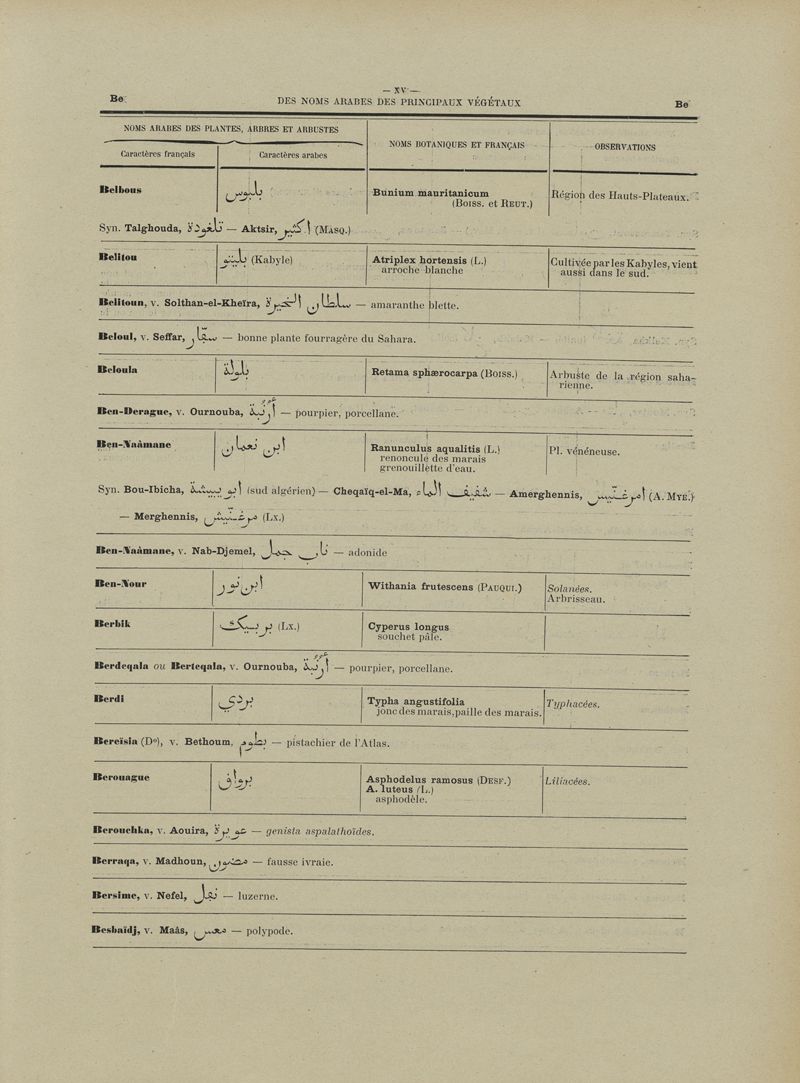 — XV —
Be DES NOMS ARABES DES PRINCIPAUX VÉGÉTAUX Be
NOMS ARABES DES PLANTES, ARBRES ET ARBUSTES
NOMS BOTANIQUES ET FRANÇAIS
OBSERVATIONS
Caractères français
Caractères arabes
Belbous بلبوس Bunium mauritanicum Région des Hauts-Plateaux.
(BOISS. et REUT.)
Syn. Talghouda, تالغودة — Aktsir, اكثير (MASQ.)
Belitou بليتو (Kabyle) Atriplex hortensis (L.) Cultivée par les Kabyles, vient
arroche blanche aussi dans le sud.
Belitoun, v. Solthan-el-Kheïra, سلطان الخيرة — amaranthe blette.
Beloul, v. Seffar, سفار — bonne plante fourragère du Sahara.
Beloula بلولة Retama sphærocarpa (BOISS.) Arbuste de la région saha-
rienne.
Ben-Derague, v. Ournouba, — pourpier, porcellane.
Ben-Naâmane ابن نعمان Ranunculus aqualitis (L.) Pl. vénéneuse.
renoncule des marais
grenouillètte d'eau.
Syn. Bou-Ibicha, (sud algérien) — Cheqaïq-el-Ma, شقيق الماء — Amerghennis, (A. MYE.)
— Merghennis, (LX.)
Ben-Naâmane, v. Nab-Djemel, ناب جمل — adonide
Ben-Nour ابن نور Withania frutescens (PAUQUI.) Solanées.
Arbrisseau.
Berbik بربيك (LX.) Cyperus longus
souchet pâle.
Berdeqala ou Berteqala, v. Ournouba, — pourpier, porcellane.
Berdi بردي Typha angustifolia Typhacées.
jonc des marais, paille des marais.
Bereïsia (D°), v. Bethoum, بطوم — pistachier de l'Atlas.
Berouague برواق Asphodelus ramosus (DESF.) Liliacées.
A. luteus (L.)
asphodèle.
Berouchka, v. Aouira, عويرة — genista aspalathoïdes.
Berraqa, v. Madhoun, — fausse ivraie.
Bersime, v. Nefel, نفل — luzerne.
Besbaïdj, v. Maâs, — polypode.